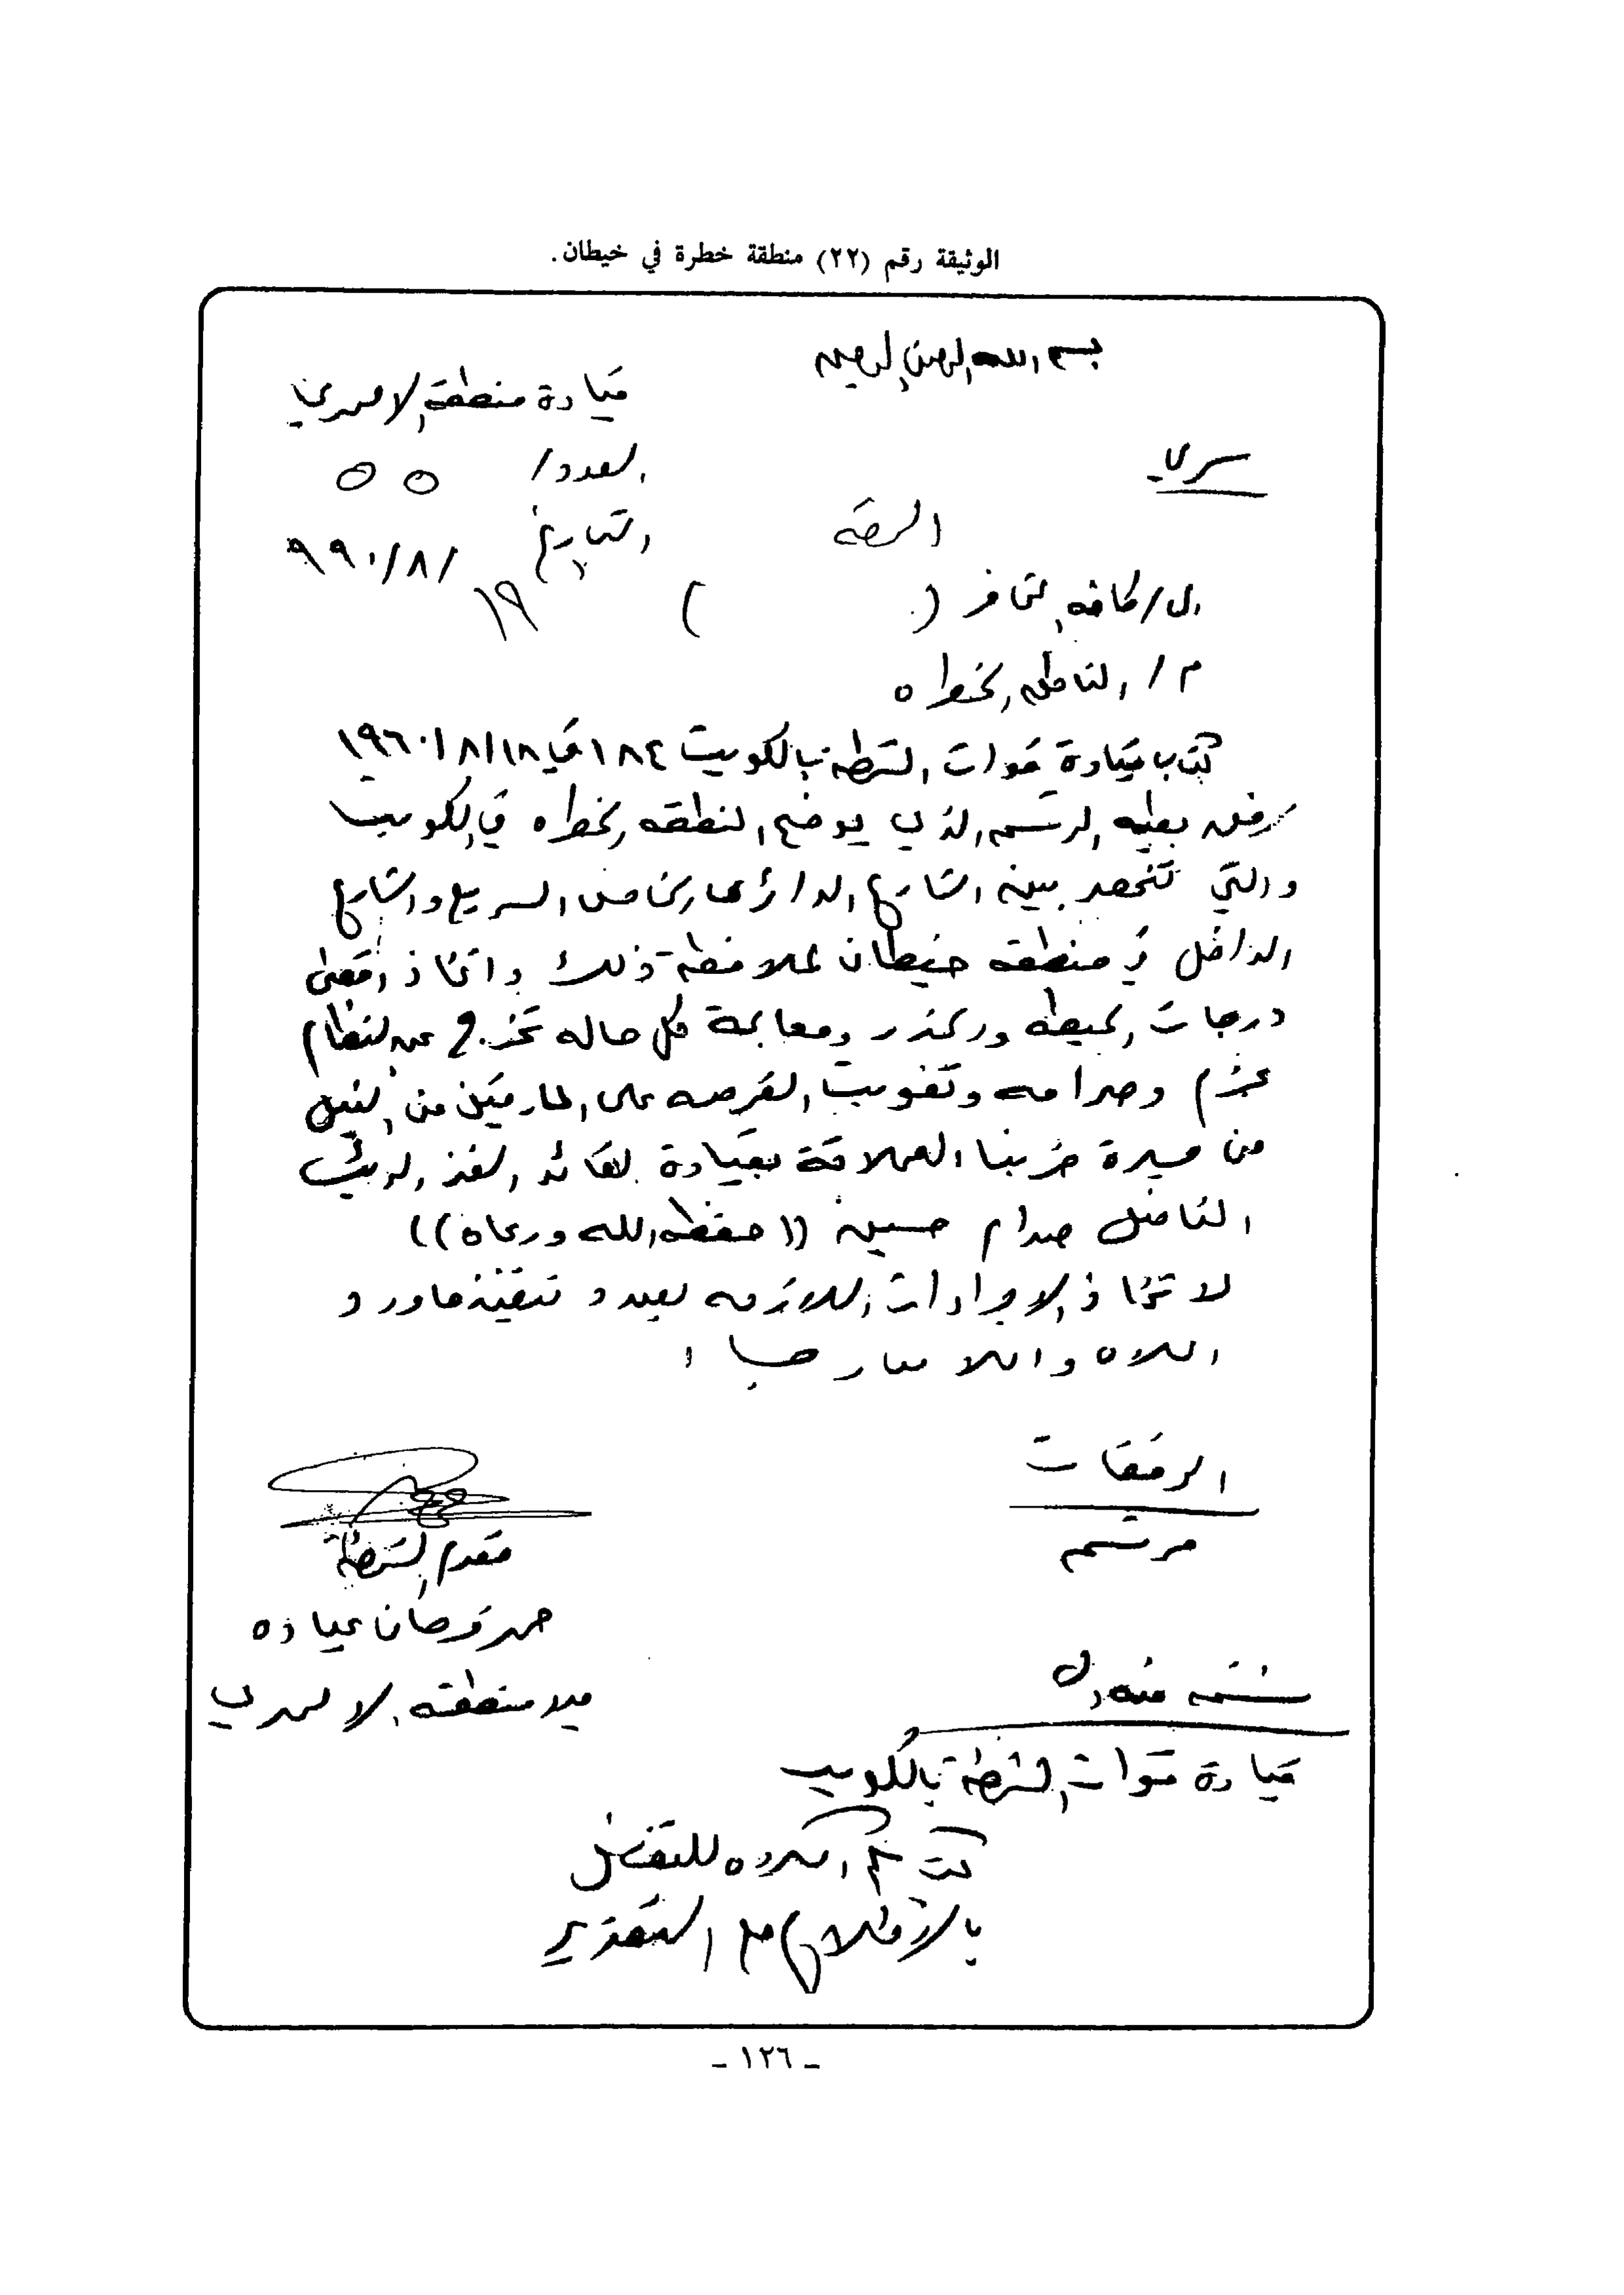 الوثيقة رقم (٢٢) منطقة خطرة في خيطان.
بسم الله الرحمن الرحيم
قيادة منطقة الاحمدي
سري
العدد/ ٥٥
التاريخ ١٩/٨/٩٩٠
الى/ كافة المخافر ( )
م/ المناطق الخطره
كتاب قيادة قوات الشرطة بالكويت ١٨٤ في ١٨/٨/١٩٩٠
نرفق بطيه المرتسم الذي يوضح المنطقه الخطره في الكويت
والتي تنحصر بين الشارع الدائري الخامس السريع والشارع
الداخل في منطقه خيطان لملاحظة ذلك واتخاذ اقصى
درجات الحيطه والحذر ومعالجة كل حاله تخرج عن النظام
بحزم وصرامه وتفويت الفرصه على المارقين من النيل
من مسيرة حزبنا العملاقة بقيادة القائد الفذ الرئيس
المناضل صدام حسين ((حفظه الله ورعاه))
لاتخاذ الاجراءات اللازمه بصدد تنفيذ ماورد
اعلاه واعلامنا رجاءا
المرفقات
مرتسم
مقدم الشرطة
حمد رمضان عياده
مدير منطقه الاحمدي
نسخه منه الى
قيادة قوات الشرطة بالكويت
كتابكم اعلاه للتفضل
بالاطلاع مع التقدير
- ١٢٦ -